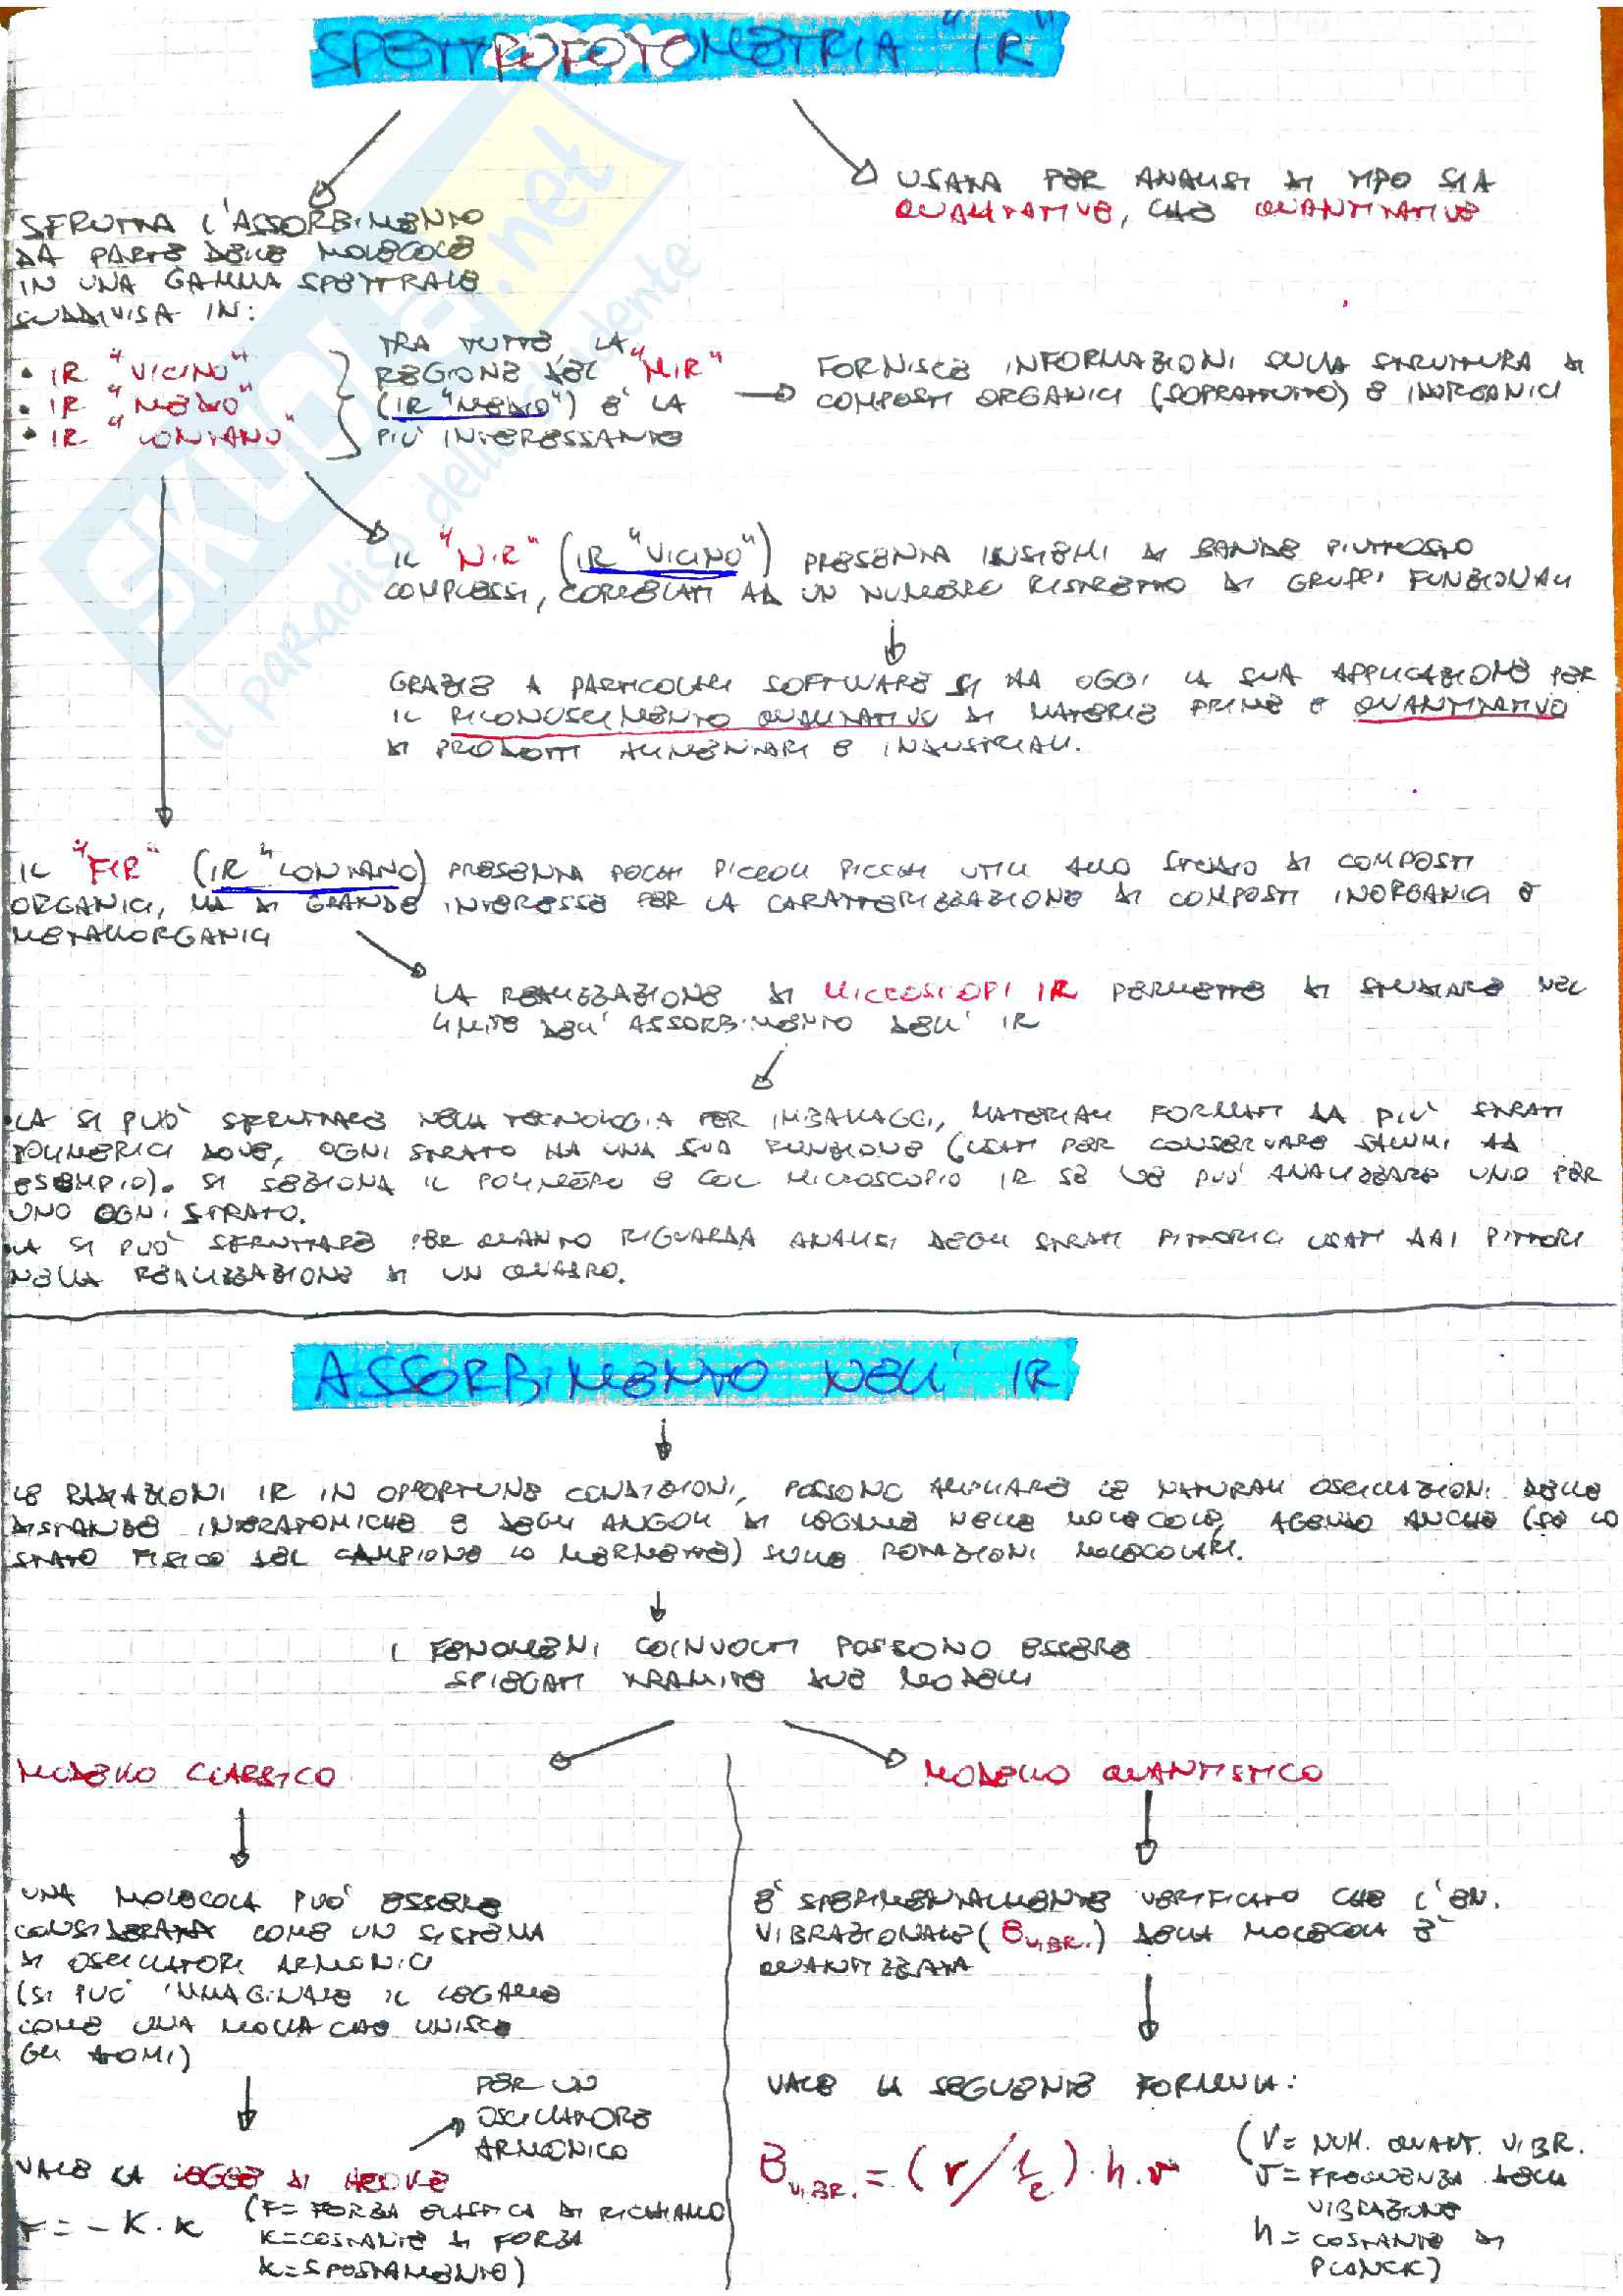 SPETTROFOTOMETRIA "IR"
SFRUTTA L'ASSORBIMENTO
DA PARTE DELLE MOLECOLE
IN UNA GAMMA SPETTRALE
SUDDIVISA IN:
• IR "VICINO"
• IR "MEDIO"
• IR "LONTANO"
USATA PER ANALISI DI TIPO SIA
QUALITATIVE, CHE QUANTITATIVE
TRA TUTTE, LA
REGIONE DEL "MIR"
(IR "MEDIO") È LA
PIÙ INTERESSANTE
FORNISCE INFORMAZIONI SULLA STRUTTURA DI
COMPOSTI ORGANICI (SOPRATTUTTO) E INORGANICI
IL "NIR" (IR "VICINO") PRESENTA INSIEMI DI BANDE PIUTTOSTO
COMPLESSI, CORRELATI AD UN NUMERO RISTRETTO DI GRUPPI FUNZIONALI
GRAZIE A PARTICOLARI SOFTWARE SI HA OGGI LA SUA APPLICAZIONE PER
IL RICONOSCIMENTO QUALITATIVO DI MATERIE PRIME E QUANTITATIVO
DI PRODOTTI ALIMENTARI E INDUSTRIALI.
IL "FIR" (IR "LONTANO) PRESENTA POCHI PICCOLI PICCHI UTILI ALLO STUDIO DI COMPOSTI
ORGANICI, MA DI GRANDE INTERESSE PER LA CARATTERIZZAZIONE DI COMPOSTI INORGANICI E
METALLORGANICI
LA REALIZZAZIONE DI MICROSCOPI IR PERMETTE DI STUDIARE NEL
LIMITE DELL'ASSORBIMENTO DELL'IR
• LA SI PUÒ SFRUTTARE NELLA TECNOLOGIA PER IMBALLAGGI, MATERIALI FORMATI DA PIÙ STRATI
POLIMERICI DOVE, OGNI STRATO HA UNA SUA FUNZIONE (USATI PER CONSERVARE SALUMI AD
ESEMPIO). SI SEZIONA IL POLIMERO E COL MICROSCOPIO IR SE NE PUÒ ANALIZZARE UNO PER
UNO OGNI STRATO.
• LA SI PUÒ SFRUTTARE PER QUANTO RIGUARDA ANALISI DEGLI STRATI PITTORICI USATI DAI PITTORI
NELLA REALIZZAZIONE DI UN QUADRO.
ASSORBIMENTO NELL'IR
LE RADIAZIONI IR IN OPPORTUNE CONDIZIONI, POSSONO AMPLIARE LE NATURALI OSCILLAZIONI DELLE
DISTANZE INTERATOMICHE E DEGLI ANGOLI DI LEGAME NELLE MOLECOLE, AGENDO ANCHE (SE LO
STATO FISICO DEL CAMPIONE LO PERMETTE) SULLE ROTAZIONI MOLECOLARI.
I FENOMENI COINVOLTI POSSONO ESSERE
SPIEGATI TRAMITE DUE MODELLI
MODELLO CLASSICO
UNA MOLECOLA PUÒ ESSERE
CONSIDERATA COME UN SISTEMA
DI OSCILLATORI ARMONICI
(SI PUÒ IMMAGINARE IL LEGAME
COME UNA MOLLA CHE UNISCE
GLI ATOMI)
PER UN
OSCILLATORE
ARMONICO
VALE LA LEGGE DI HOOKE
F = - K · x
(F= FORZA ELASTICA DI RICHIAMO
K=COSTANTE DI FORZA
x=SPOSTAMENTO)
MODELLO QUANTISTICO
È SPERIMENTALMENTE VERIFICATO CHE L'EN.
VIBRAZIONALE (E VIBR.) DELLA MOLECOLA È
QUANTIZZATA
VALE LA SEGUENTE FORMULA:
E VIBR. = (v/ 1/2) · h · ν
(V= NUM. QUANT. VIBR.
ν=FREQUENZA DELLA
VIBRAZIONE
h= COSTANTE DI
PLANCK)
SKUOLA.net
il paradiso dello studente